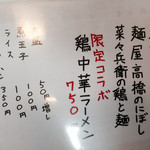 麺屋高橋のにぼし
菜々兵衛の鶏と麺
限定コラボ
鶏中華ラーメン
７５０
盛 ５０円増し
玉子 １００円
ライス １００円
３５０円